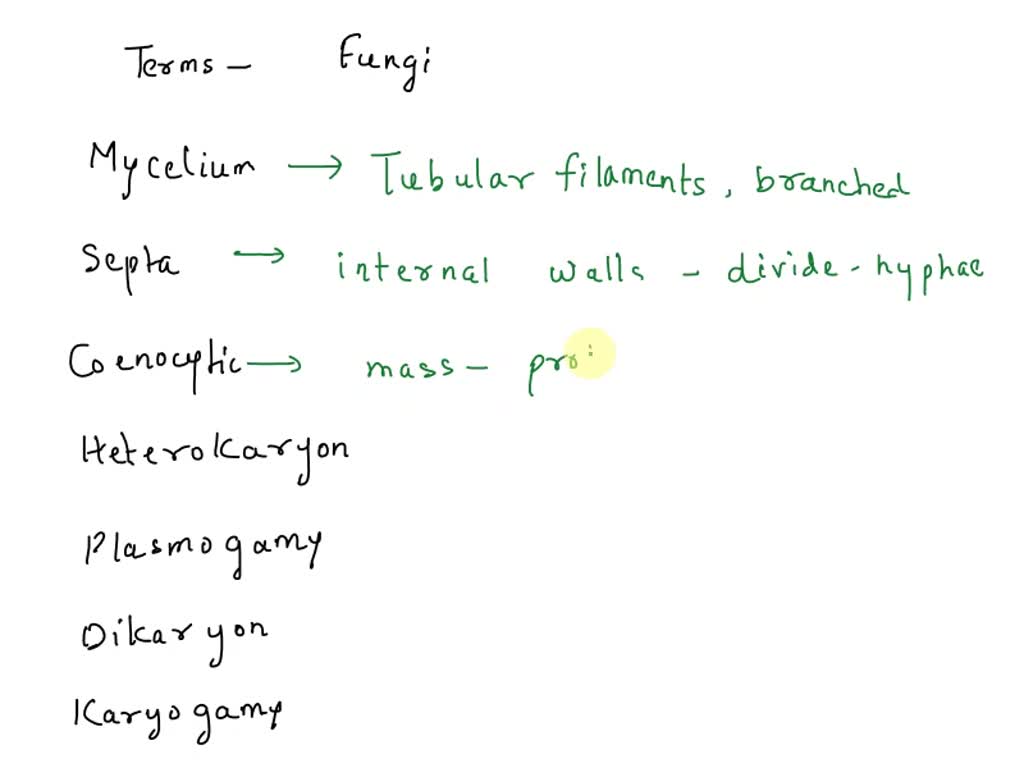 Terms - Fungi
Mycelium → Tubular filaments, branched
Septa → internal walls - divide - hyphae
Coenocytic → mass - pro
Heterokaryon
Plasmogamy
Dikaryon
Karyogamy